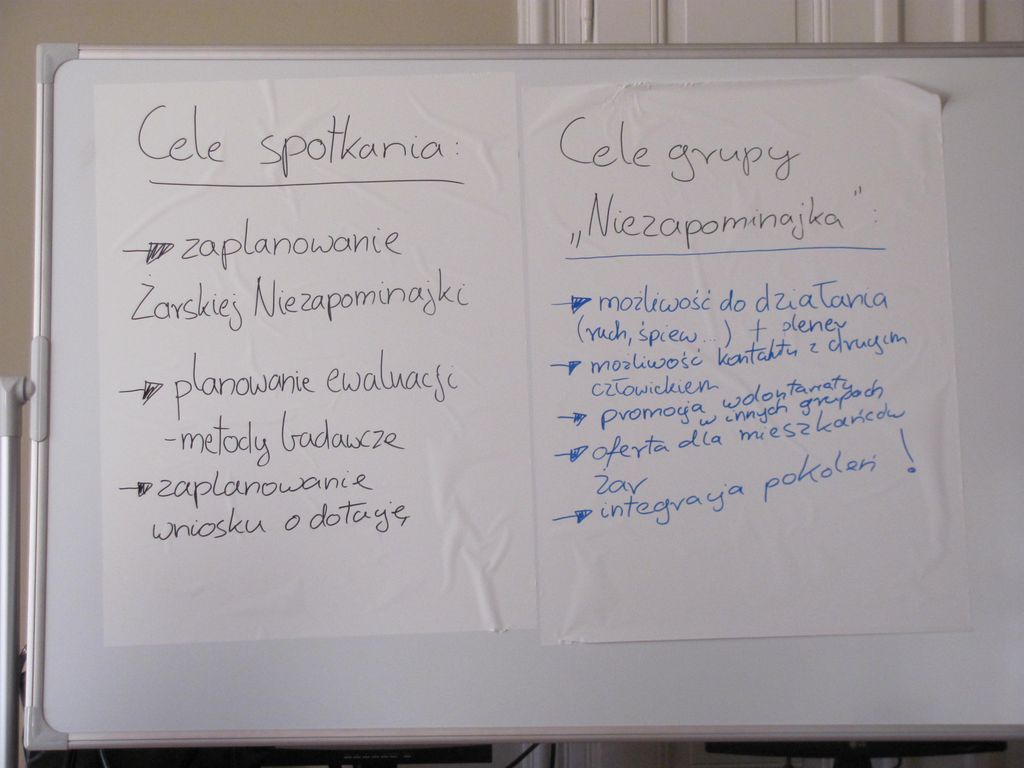 Cele spotkania:
→ zaplanowanie
Żarskiej Niezapominajki
→ planowanie ewaluacji
- metody badawcze
→ zaplanowanie
wniosku o dotację,
Cele grupy
„Niezapominajka”:
→ możliwość do działania
(ruch, śpiew...) + plener
→ możliwość kontaktu z drugim
człowiekiem
→ promocja wolontariatu
w innych grupach
→ oferta dla mieszkańców
Żar
→ integracja pokoleń !